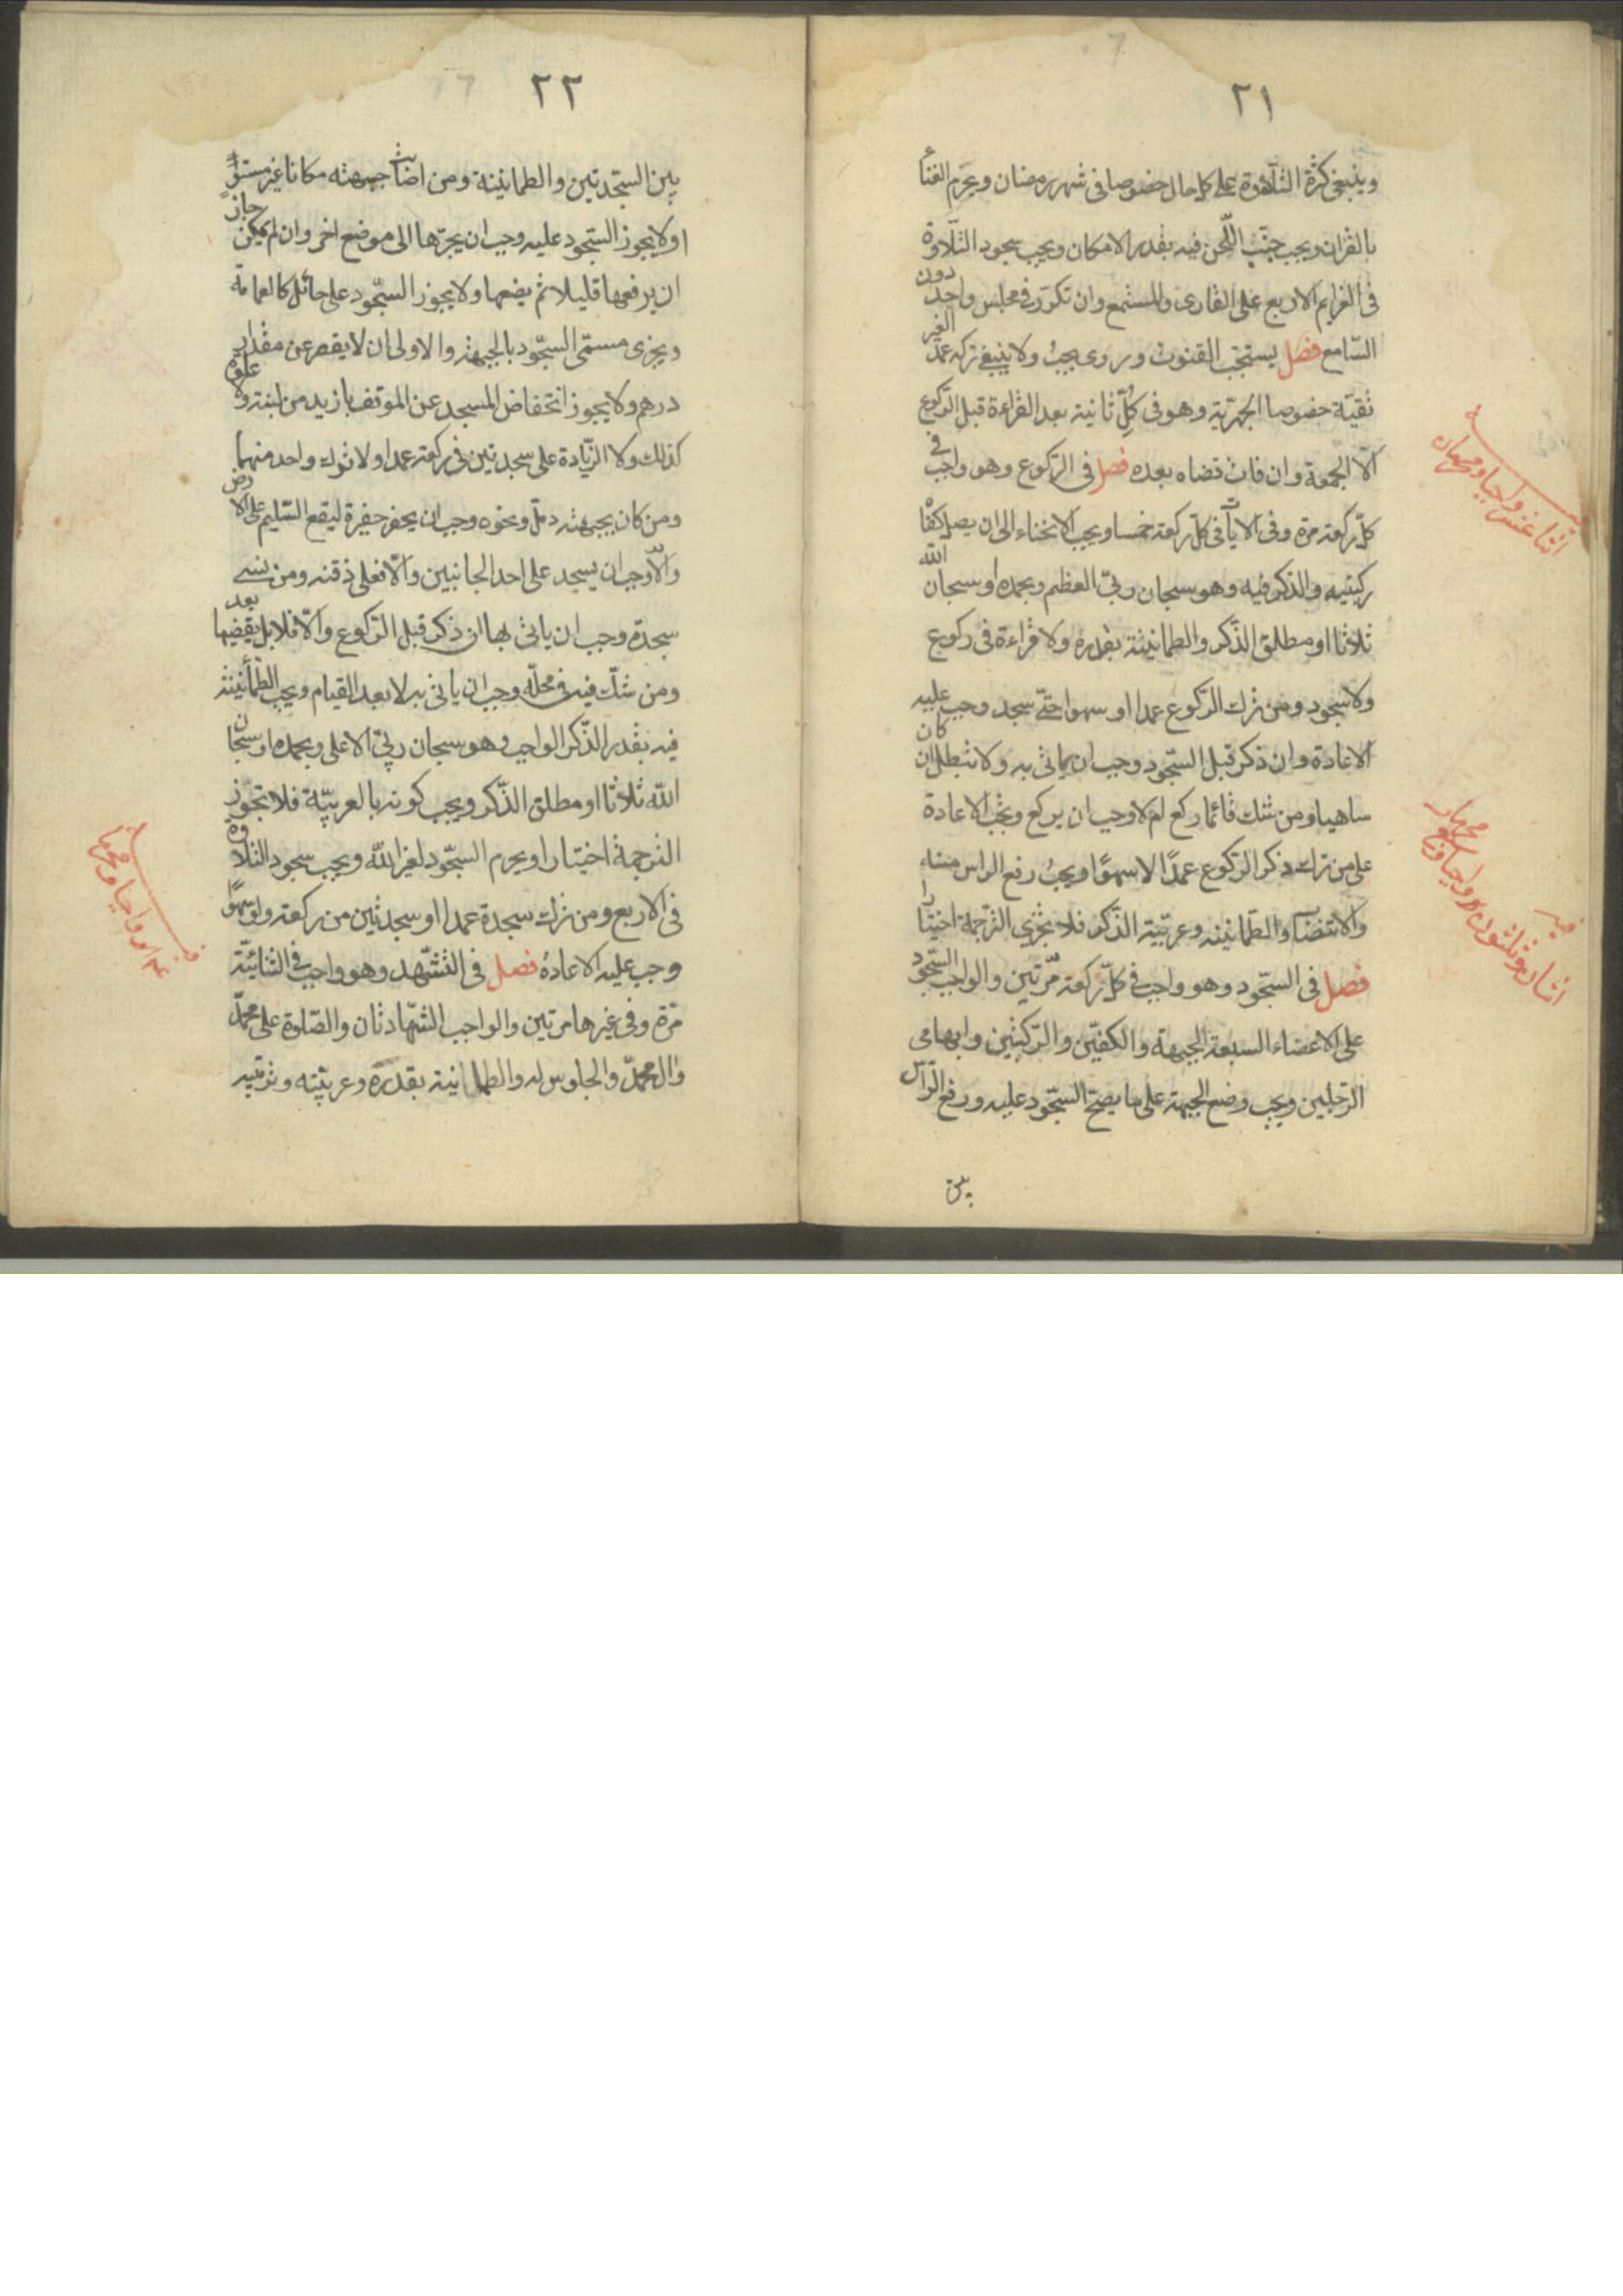 ٢١
وينبغى كثرة التلاوة على كل حال خصوصا فى شهر رمضان ويحرم الغناء
بالقران ويجب تجنب اللحن فيه بقدر الامكان ويجب سجود التلاوة
فى العزايم الاربع على القارى والمستمع وان تكرر فى مجلس واحد دون
السامع فصل يستحب القنوت وروى يجب ولا ينبغى تركه عمدا لغير
تقية خصوصا الجهرية وهو فى كل ثانية بعد القراءة قبل الركوع
الا الجمعة وان فات قضاه بعده فصل فى الركوع وهو واجب فى
كل ركعة مرة وفى الايات فى كل ركعة خمسا ويجب الانحناء الى ان يصل كفاه
ركبتيه والذكر فيه وهو سبحان ربى العظيم وبحمده او سبحان الله
ثلاثا او مطلق الذكر والطمانينة بقدره ولا قراءة فى ركوع
ولا سجود ومن ترك الركوع عمدا او سهوا حتى سجد وجب عليه
الاعادة وان ذكر قبل السجود وجب ان ياتى به ولا تبطل ان كان
ساهيا ومن شك قائما ركع ام لا وجب ان يركع ويجب الاعادة
على من ترك ذكر الركوع عمدًا لا سهوًا ويجب رفع الراس منه
والانتصاب والطمانينه وعربية الذكر فلا تجزى الترجمة اختيارا
فصل فى السجود وهو واجب فى كل ركعة مرتين والواجب السجود
على الاعضاء السبعة الجبهة والكفين والركبتين وابهامى
الرجلين ويجب وضع الجبهة على ما يصح السجود عليه ورفع الراس
بين
اثنا عشر واجبا ومحرمان
فيه اثنان وثلثون واجبا
٢٢
بين السجدتين والطمانينة ومن اصابت جبهته مكانا غير مستوٍ
او لا يجوز السجود عليه وجب ان يجرها الى موضع اخر وان لم يمكن جاز
ان يرفعها قليلا ثم يضعها ولا يجوز السجود على حائل كالعمامة
ويجزى مسمى السجود بالجبهة والاولى ان لا يقصر عن مقدار
درهم ولا يجوز انخفاض المسجد عن الموقف بازيد من لبنة ولا علوه
كذلك ولا الزيادة على سجدتين فى ركعة عمدا ولا ترك واحد منهما
ومن كان بجبهته دمل ونحوه وجب ان يحفر حفرة ليقع السليم على الارض
والا وجب ان يسجد على احد الجانبين والا فعلى ذقنه ومن نسى
سجدة وجب ان ياتى بها ان ذكر قبل الركوع والا فلا بل يقضيها بعد
ومن شك فيه فى محله وجب ان ياتى به لا بعد القيام ويجب الطمأنينة
فيه بقدر الذكر الواجب وهو سبحان ربى الاعلى وبحمده او سبحان
الله ثلاثا او مطلق الذكر ويجب كونه بالعربية فلا تجوز
الترجمة اختيارا ويحرم السجود لغير الله ويجب سجود التلاوة
فى الاربع ومن ترك سجدة عمدا او سجدتين من ركعة ولو سهوًا
وجب عليه الاعادة فصل فى التشهد وهو واجب فى الثنائية
مرة وفى غيرها مرتين والواجب الشهادتان والصلوة على محمد
وال محمد والجلوس له والطمانينة بقدره وعربيته وترتيبه